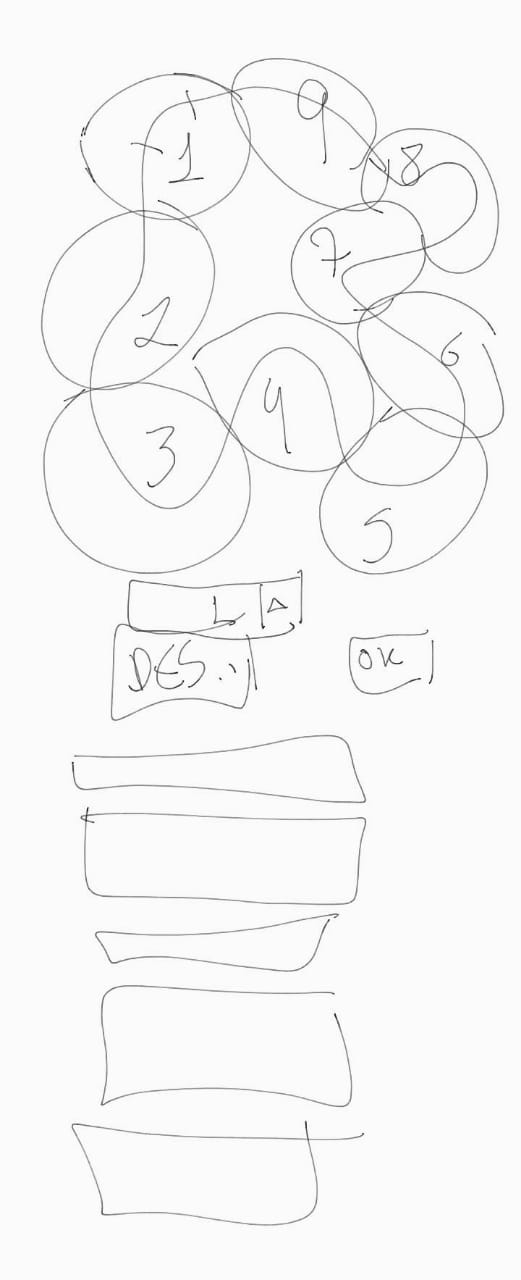 1 9
8
7
2
6
4
3
5
L
DES.
OK